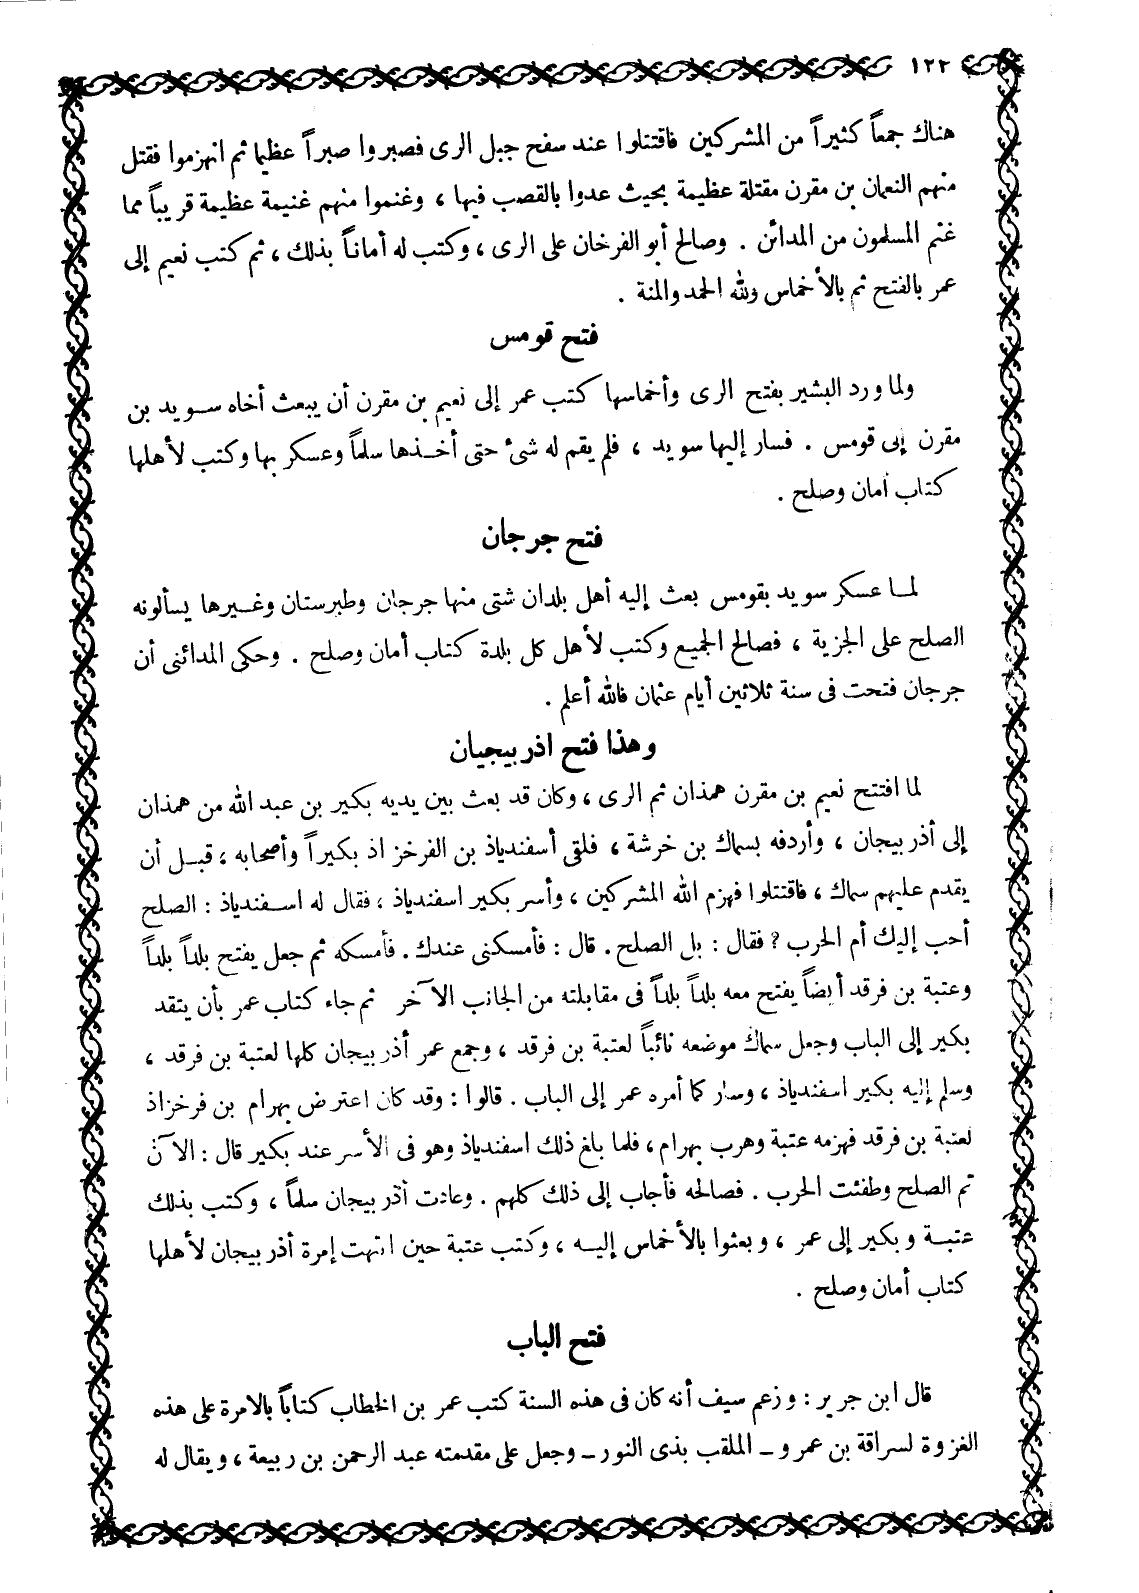 ١٢٢
هناك جمعاً كثيراً من المشركين فاقتتلوا عند سفح جبل الرى فصبروا صبراً عظيما ثم انهزموا فقتل
منهم النعمان بن مقرن مقتلة عظيمة بحيث عدوا بالقصب فيها ، وغنموا منهم غنيمة عظيمة قريباً مما
غنم المسلمون من المدائن . وصالح أبو الفرخان على الرى ، وكتب له أماناً بذلك ، ثم كتب نعيم إلى
عمر بالفتح ثم بالأخماس ولله الحمد والمنة .
فتح قومس
ولما ورد البشير بفتح الرى وأخماسها كتب عمر إلى نعيم بن مقرن أن يبعث أخاه سويد بن
مقرن إلى قومس . فسار إليها سويد ، فلم يقم له شئ حتى أخذها سلماً وعسكر بها وكتب لأهلها
كتاب أمان وصلح .
فتح جرجان
لما عسكر سويد بقومس بعث إليه أهل بلدان شتى منها جرجان وطبرستان وغيرها يسألونه
الصلح على الجزية ، فصالح الجميع وكتب لأهل كل بلدة كتاب أمان وصلح . وحكى المدائنى أن
جرجان فتحت فى سنة ثلاثين أيام عثمان فالله أعلم .
وهذا فتح اذربيجيان
لما افتتح نعيم بن مقرن همذان ثم الرى ، وكان قد بعث بين يديه بكير بن عبد الله من همذان
إلى أذربيجان ، وأردفه بسماك بن خرشة ، فلقى أسفندياذ بن الفرخزاذ بكيراً وأصحابه ، قبل أن
يقدم عليهم سماك ، فاقتتلوا فهزم الله المشركين ، وأسر بكير اسفندياذ ، فقال له اسفندياذ : الصلح
أحب إليك أم الحرب ؟ فقال : بل الصلح . قال : فأمسكنى عندك . فأمسكه ثم جعل يفتح بلداً بلداً
وعتبة بن فرقد أيضاً يفتح معه بلداً بلداً فى مقابلته من الجانب الآخر ثم جاء كتاب عمر بأن يتقد
بكير إلى الباب وجعل سماك موضعه نائباً لعتبة بن فرقد ، وجمع عمر أذربيجان كلها لعتبة بن فرقد ،
وسلم إليه بكير اسفندياذ ، وسار كما أمره عمر إلى الباب . قالوا : وقد كان اعترض بهرام بن فرخزاذ
لعتبة بن فرقد فهزمه عتبة وهرب بهرام ، فلما بلغ ذلك اسفندياذ وهو فى الأسر عند بكير قال : الآن
تم الصلح وطفئت الحرب . فصالحه فأجاب إلى ذلك كلهم . وعادت أذربيجان سلماً ، وكتب بذلك
عتبة وبكير إلى عمر ، وبعثوا بالأخماس إليه ، وكتب عتبة حين انتهت إمرة أذربيجان لأهلها
كتاب أمان وصلح .
فتح الباب
قال ابن جرير : وزعم سيف أنه كان فى هذه السنة كتب عمر بن الخطاب كتاباً بالامرة على هذه
الغزوة لسراقة بن عمرو ـ الملقب بذى النور ـ وجعل على مقدمته عبد الرحمن بن ربيعة ، ويقال له